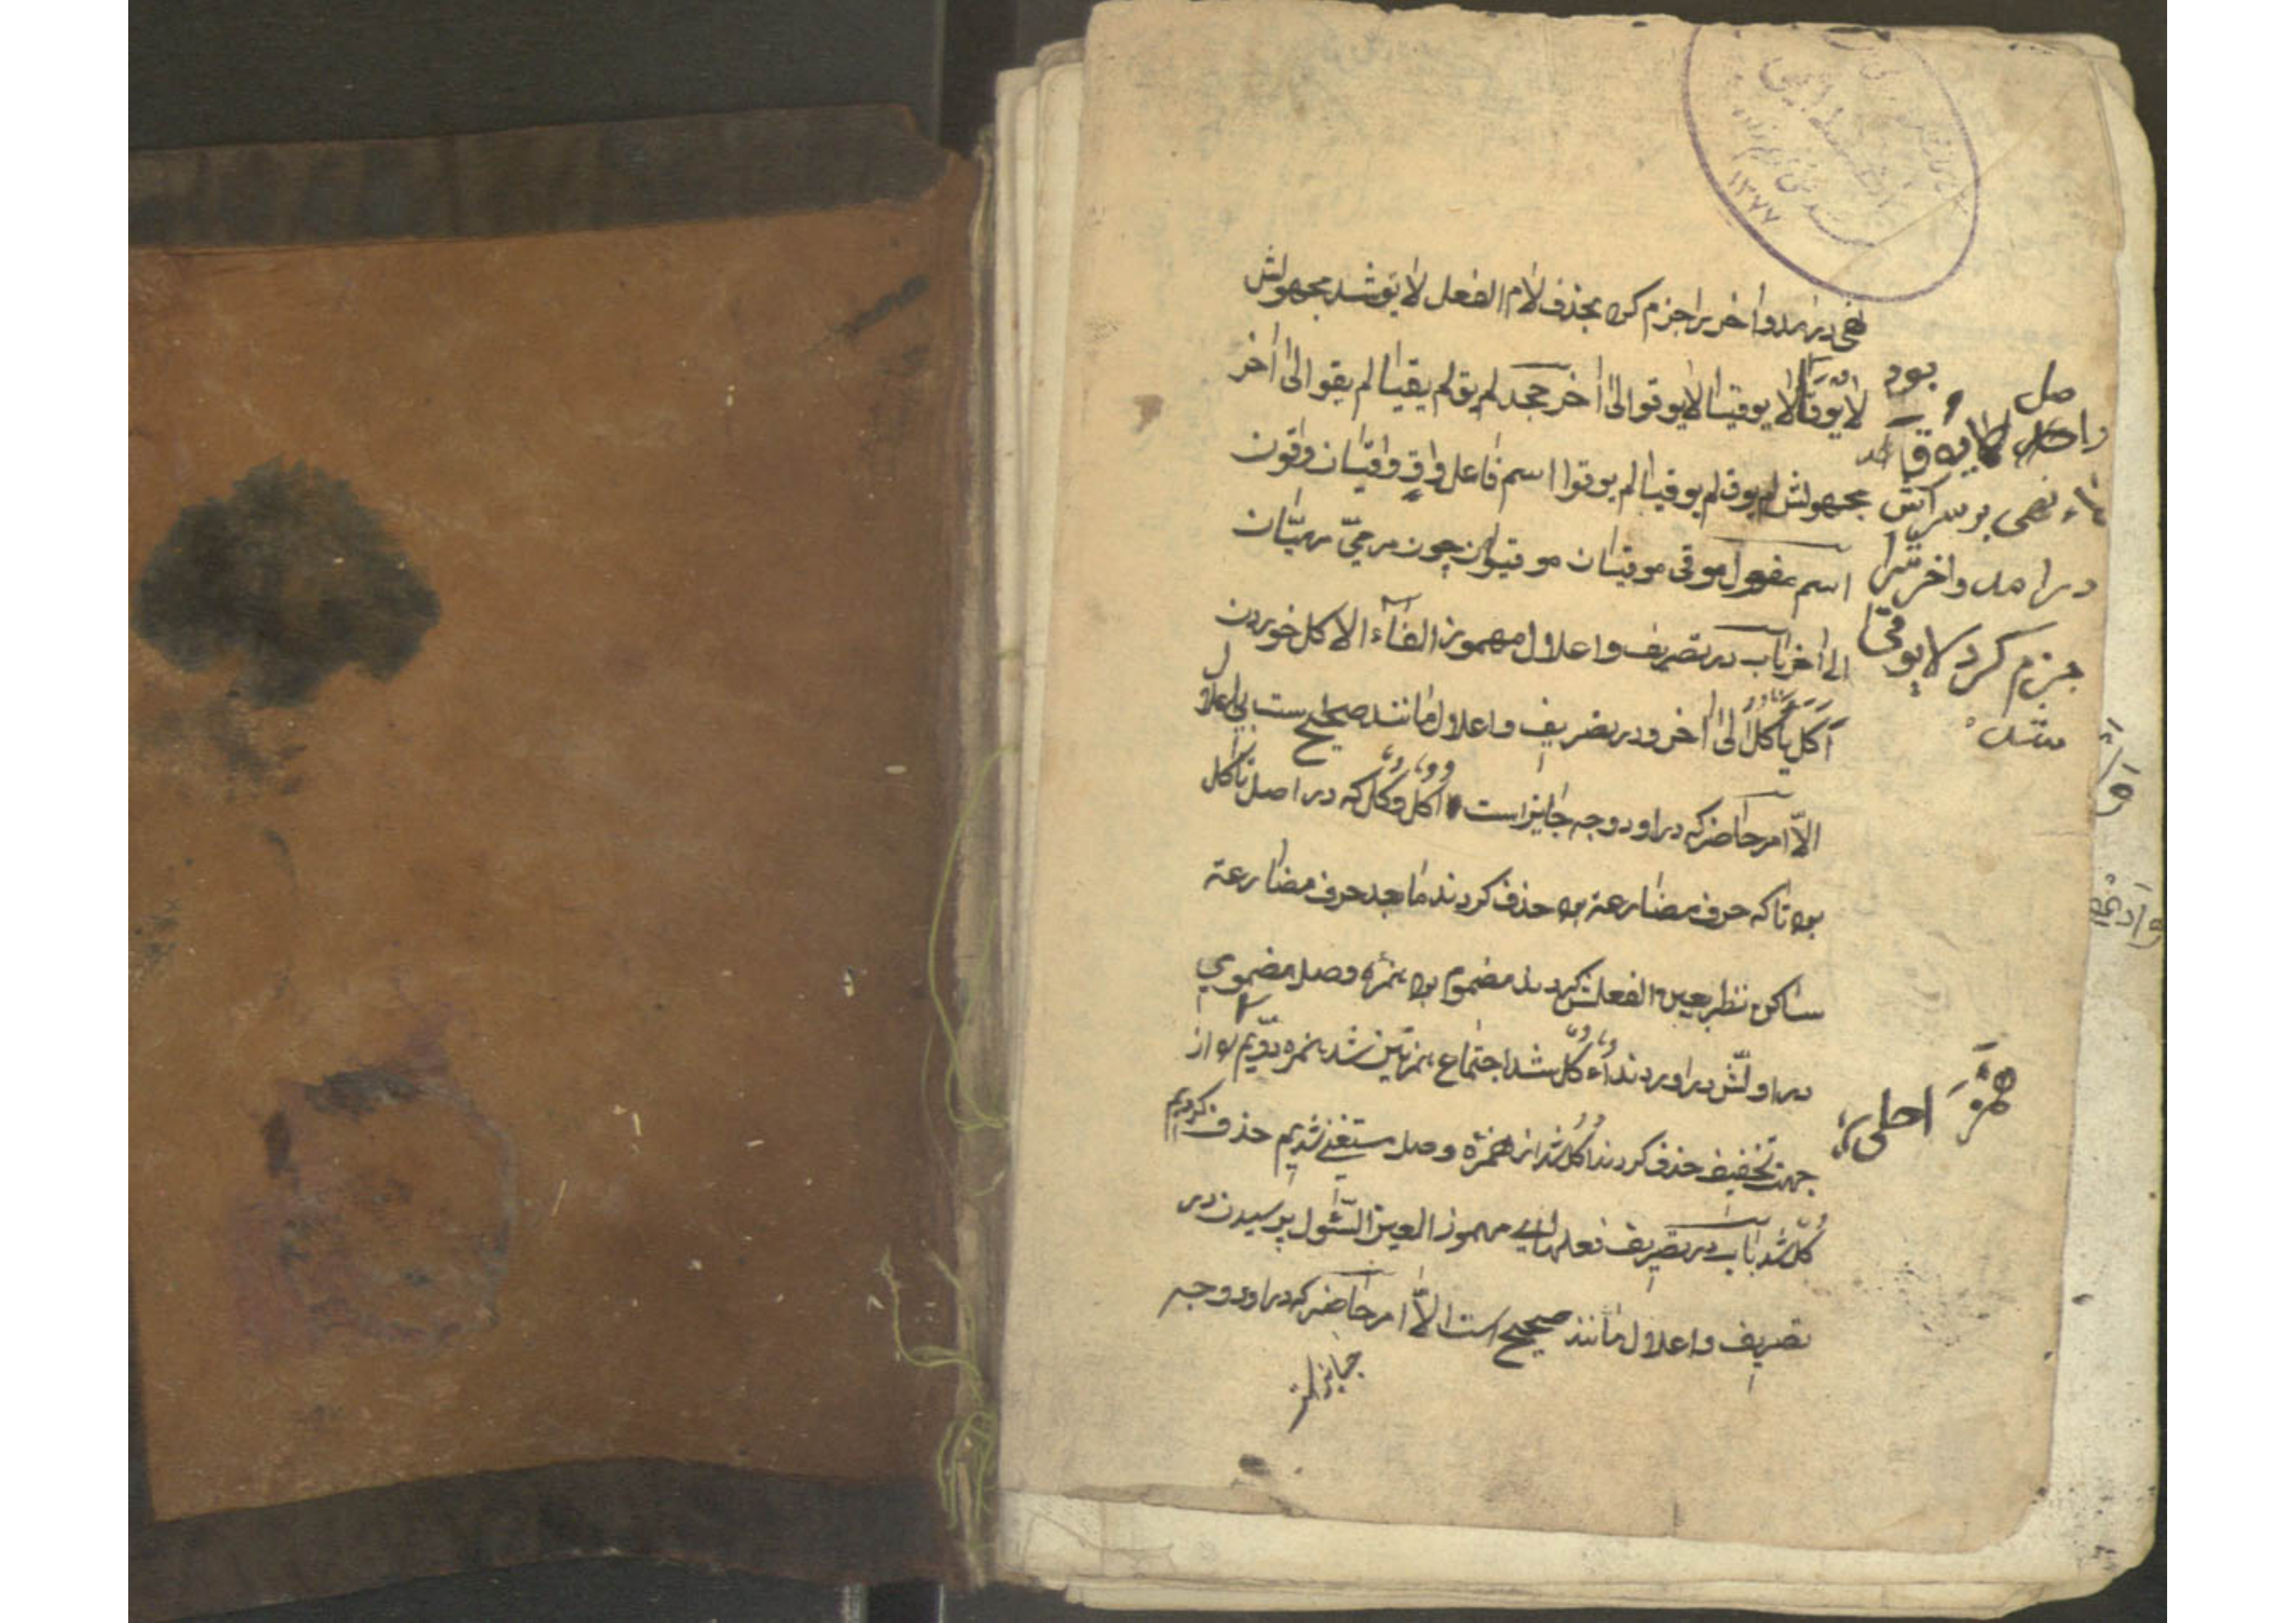 نهی درامد و اخر را جزم کرد بحذف لام الفعل لا یق شد مجهولش
لا یوق لا یوقیا لا یوقوا الی اخر جحد لم یق لم یقیا لم یقوا الی اخر
مجهولش لم یوق لم یوقیا لم یوقوا اسم فاعل واقٍ واقیان واقون
اسم مفعول موقی موقیان موقیون چون مرمیّ مرمیّان
الی اخر باب در تصریف و اعلال مهموز الفاء الاکل خوردن
اَکَلَ یَأکُلُ الی اخر و در تصریف و اعلال مانند صحیح ست بی اعلال
الّا امر حاضر که در او دو وجه جایز است اُکُل و کُل که در اصل تأکل
بود تا که حرف مضارعة بود حذف کردند مابعد حرف مضارعة
ساکن نظر بعین الفعلش کردند مضموم بود همزه وصل مضمومی
در اولش در اوردند اُءکُل شد اجتماع همزتین شد همزه دویّم را از
جهت تخفیف حذف کردند اُکُل شد از همزه وصل مستغنی شدیم حذف کردیم
کُل شد باب در تصریف فعلهای مهموز العین السّئول پرسیدن در
تصریف و اعلال مانند صحیح است الّا امر حاضر که در او دو وجه
جایز است
بود
لاء نهی بر سرش
درامد و اخرش را
جزم کرد لا یوقی
شد
همزه اصلی
۱۳۷۷